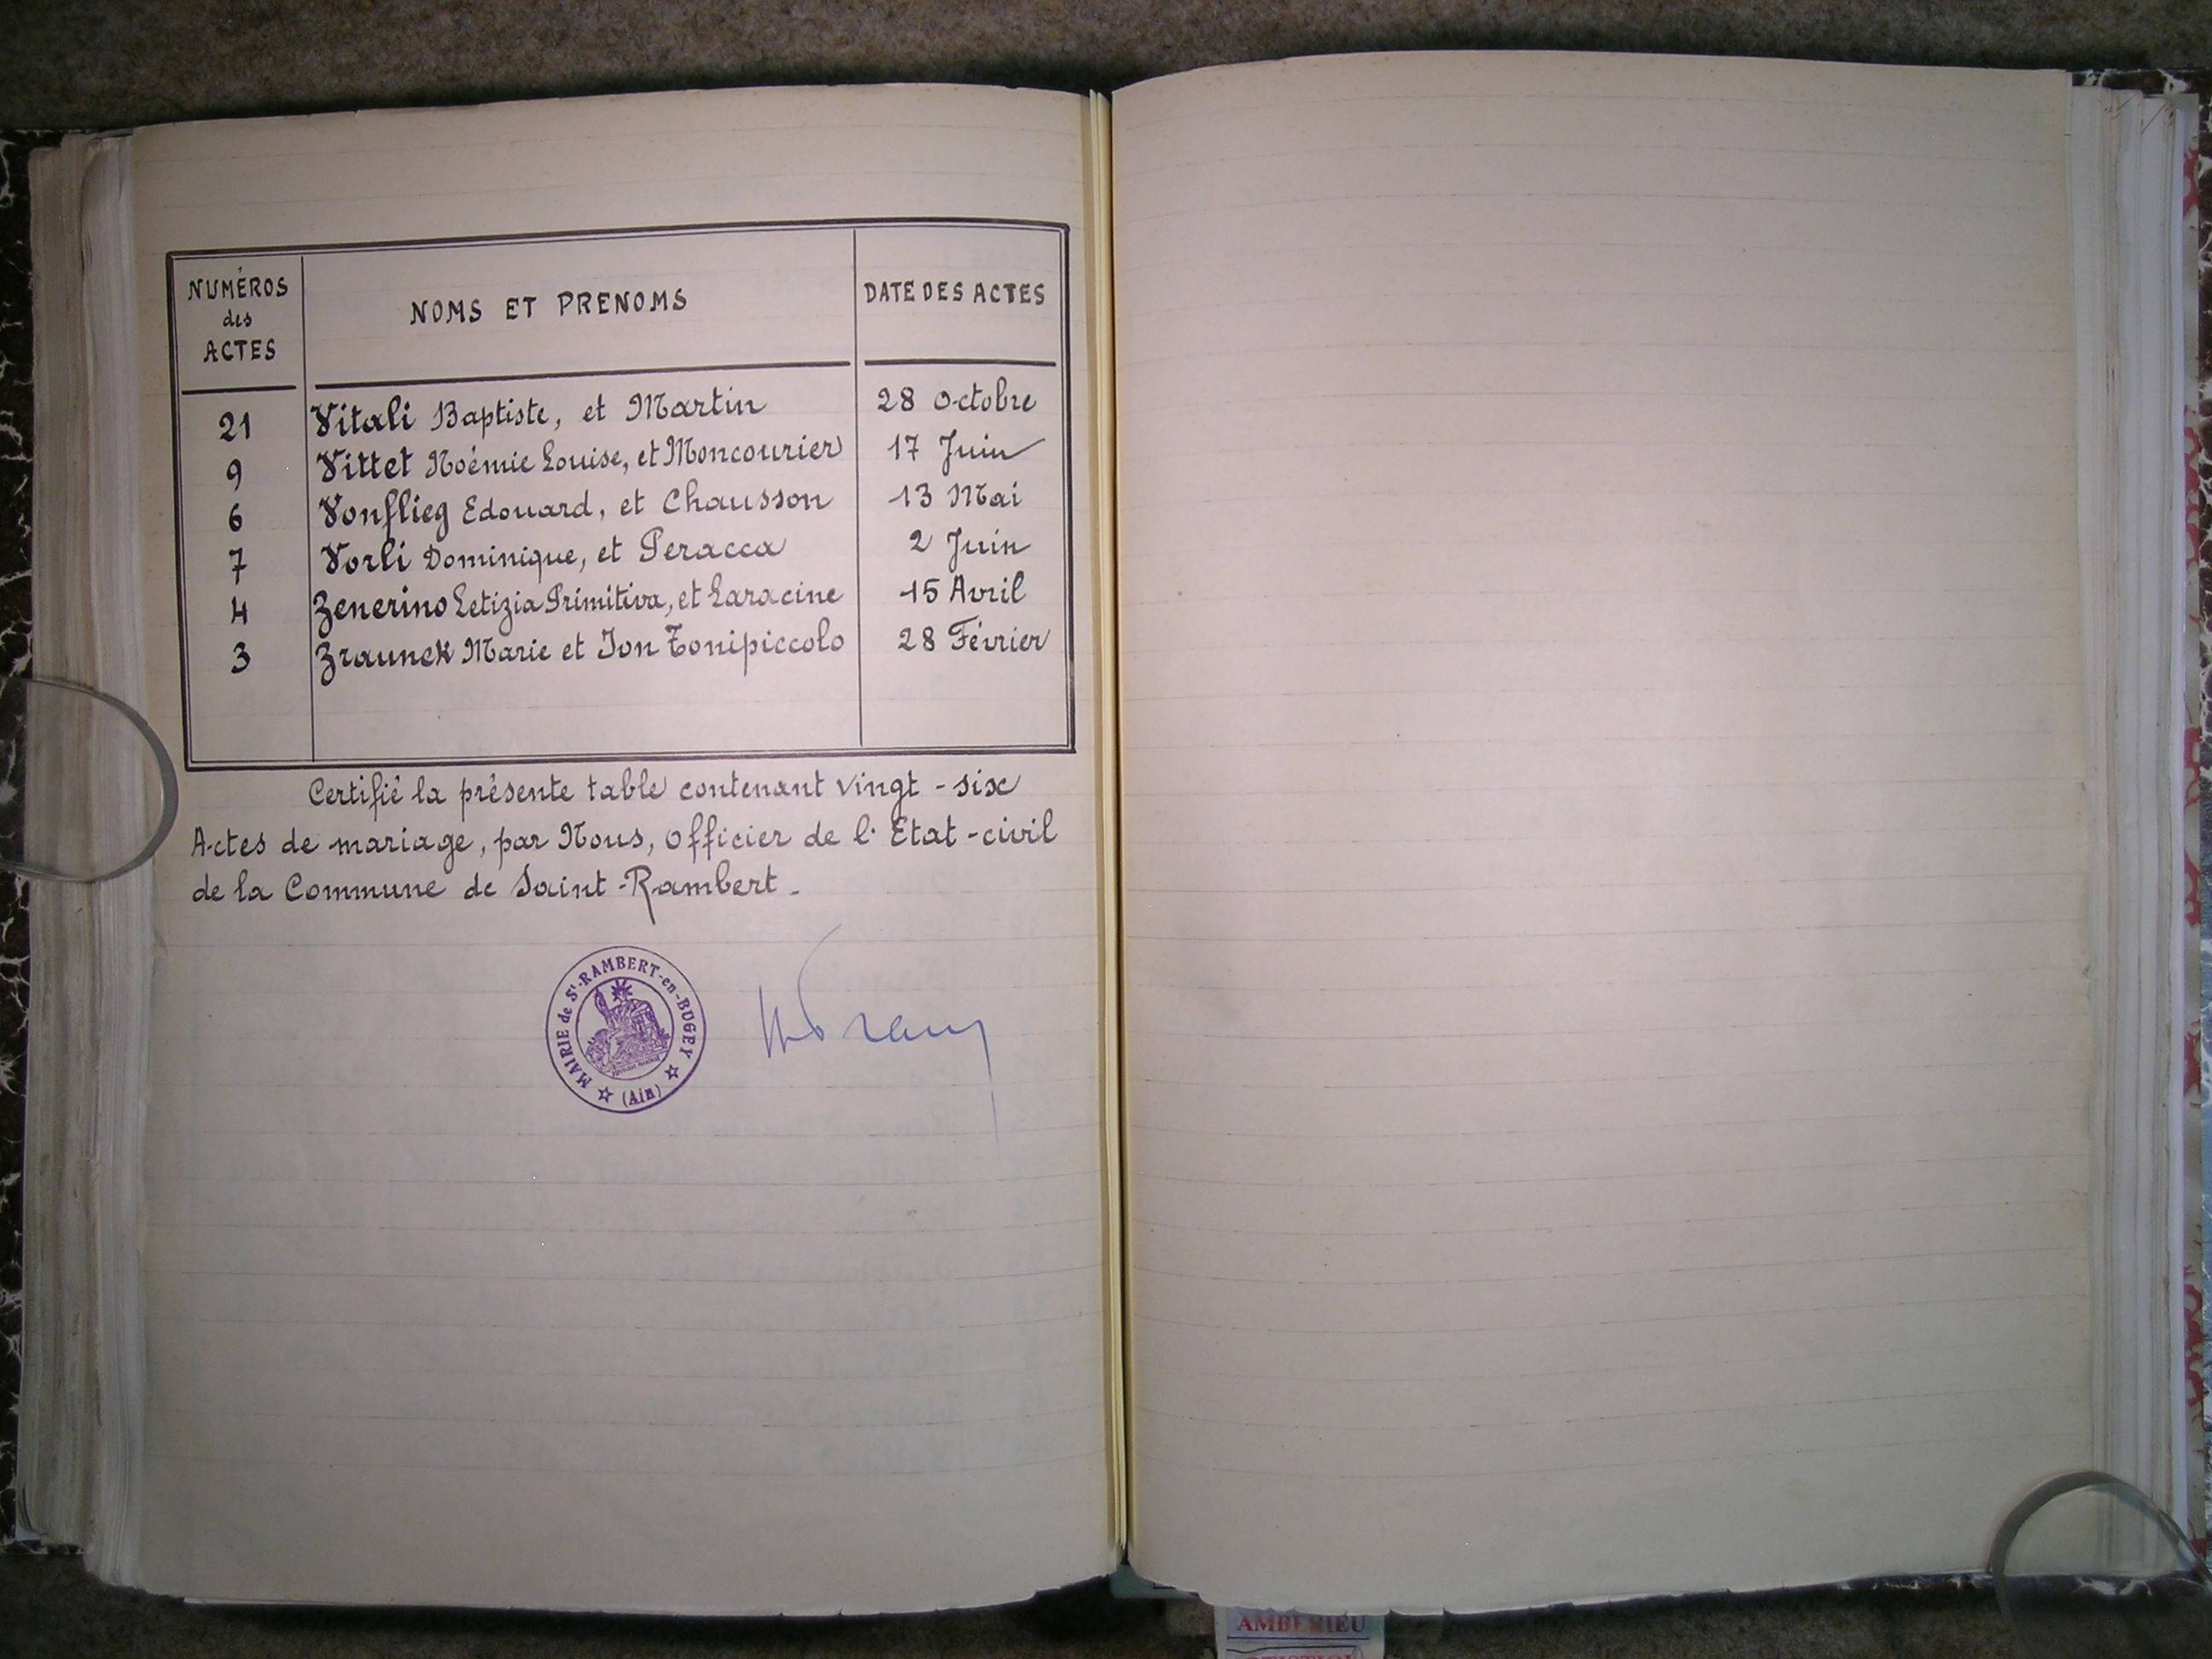 NUMÉROS
des
ACTES
NOMS ET PRENOMS
DATE DES ACTES
21 Vitali Baptiste, et Martin 28 Octobre
9 Vittet Noémie Louise, et Moncourier 17 Juin
6 Vonflieg Edouard, et Chausson 13 Mai
7 Vorli Dominique, et Peracca 2 Juin
4 Zenerino Letizia Primitiva, et Laracine 15 Avril
3 Zraunek Marie et Ion Tonipiccolo 28 Février
Certifié la présente table contenant vingt-six
Actes de mariage, par Nous, Officier de l'Etat-civil
de la Commune de Saint-Rambert.
MAIRIE de St-RAMBERT-en-BUGEY
(Ain)
AMBERIEU